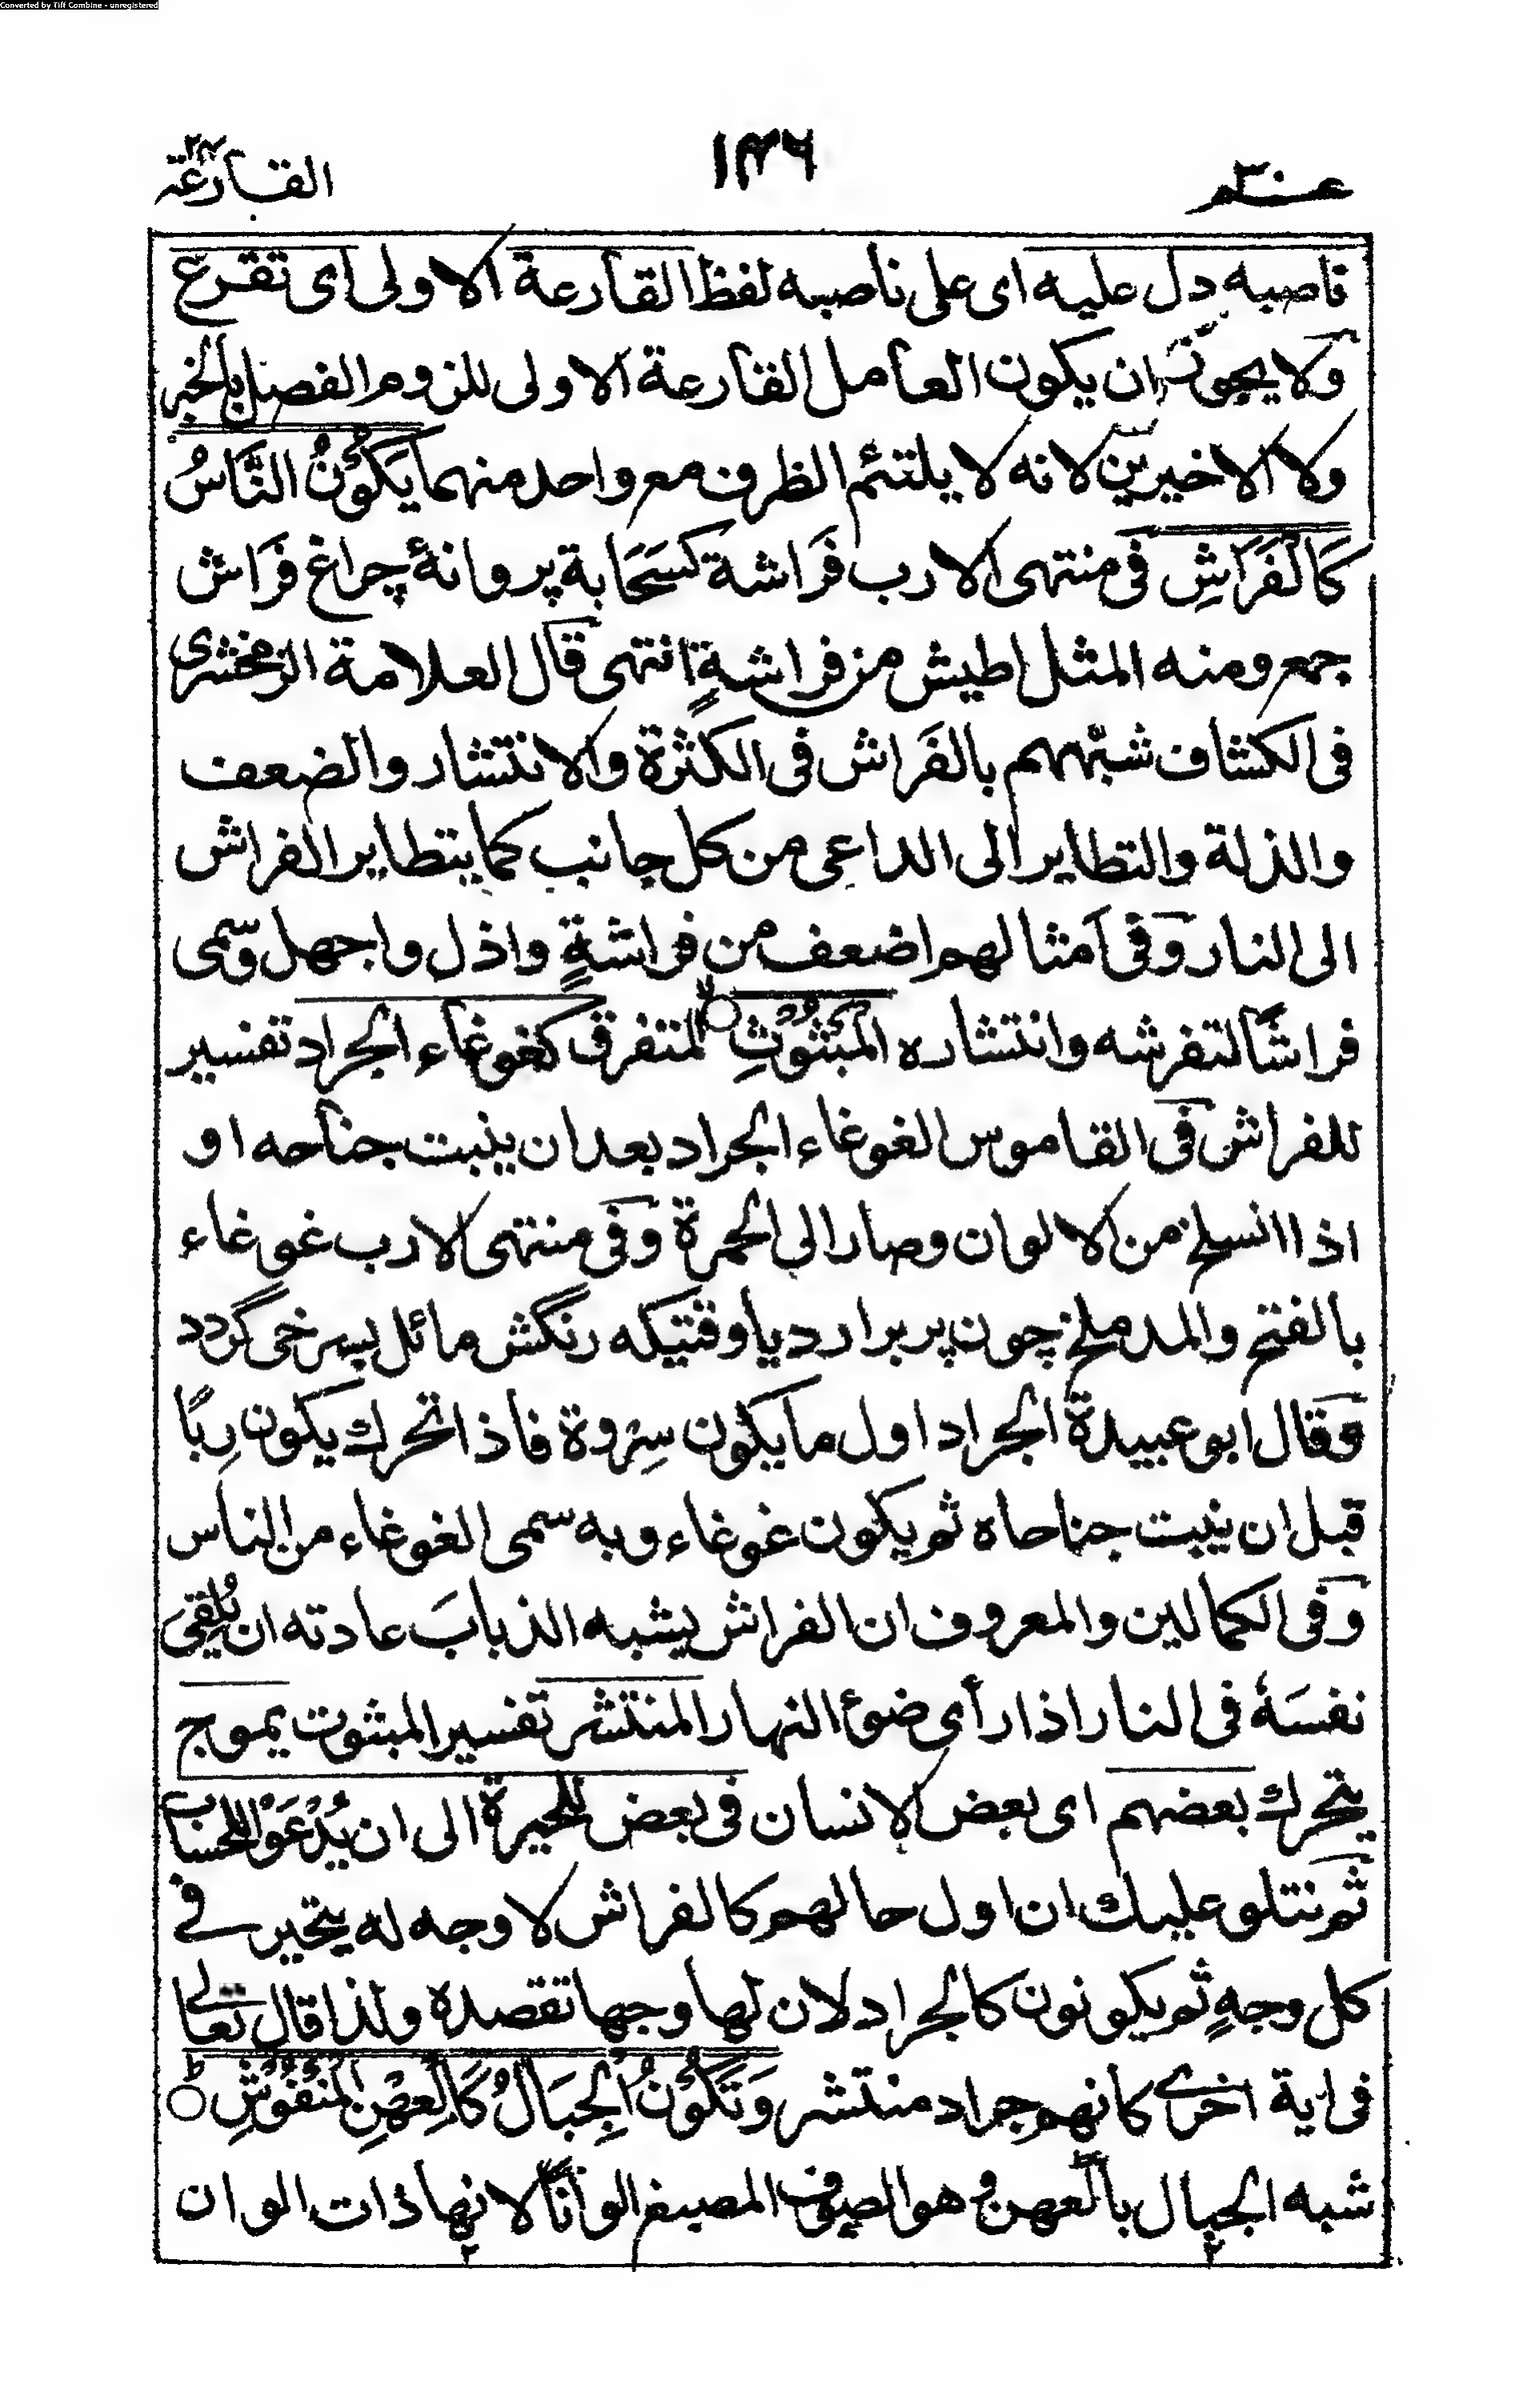 Converted by Tiff Combine - unregistered
عم ٣٠
١٣٦
القارعة
ناصبه دل عليه اى على ناصبه لفظ القارعة الاولى اى تقرع
ولا يجوز ان يكون العامل القارعة الاولى للزوم الفصل بالخبر
ولا الاخيرين لانه لا يلتئم الظرف مع واحد منهما يَكُوْنُ النَّاسُ
كَالْفَرَاشِ فى منتهى الارب فَرَاشة كسَحَابة پروانۀ چراغ فَرَاش
جمع ومنه المثل اطيش من فراشةٍ انتهى قال العلامة الزمخشرى
فى الكشاف شبّههم بالفَراش فى الكثرة والانتشار والضعف
والذلة والتطاير الى الداعى من كل جانب كما يتطاير الفراش
الى النار وفى امثالهم اضعف من فراشةٍ واذل واجهل وسمى
فراشًا لتفرشه وانتشاره الْمَبْثُوْثِ ۙ المتفرق كغوغاء الجراد تفسير
للفراش فى القاموس الغوغاء الجراد بعد ان ينبت جناحه او
اذا انسلخ من الالوان وصار الى الحمرة وفى منتهى الارب غوغاء
بالفتح والمد ملخ چون پر برارد يا وقتيكه رنگش مائل بسرخى گردد
وقال ابو عبيدة الجراد اول ما يكون سِرْوة فاذا تحرك يكون دبًا
قبل ان ينبت جناحاه ثم يكون غوغاء وبه سمى الغوغاء من الناس
وفى الكمالين والمعروف ان الفراش يشبه الذبابَ عادته ان يُلْقِىَ
نفسَهٗ فى النار اذا رأى ضوء النهار المنتشر تفسير المبثوث يموج
يتحرك بعضهم اى بعض الانسان فى بعض للحيرة الى ان يُدْعَوْا للحساب
ثم نتلو عليك ان اول حالهم كالفراش لا وجه له يتحير فى
كل وجهٍ ثم يكونون كالجراد لان لها وجها تقصده ولذا قال تعالى
فى اية اخرى كانهم جراد منتشر وَتَكُوْنُ الْجِبَالُ كَالْعِهْنِ الْمَنْفُوْشِ ۟ؕ
شبه الجبال بالعهن وهو الصوف المصبغ الوانًا لانها ذات الوان